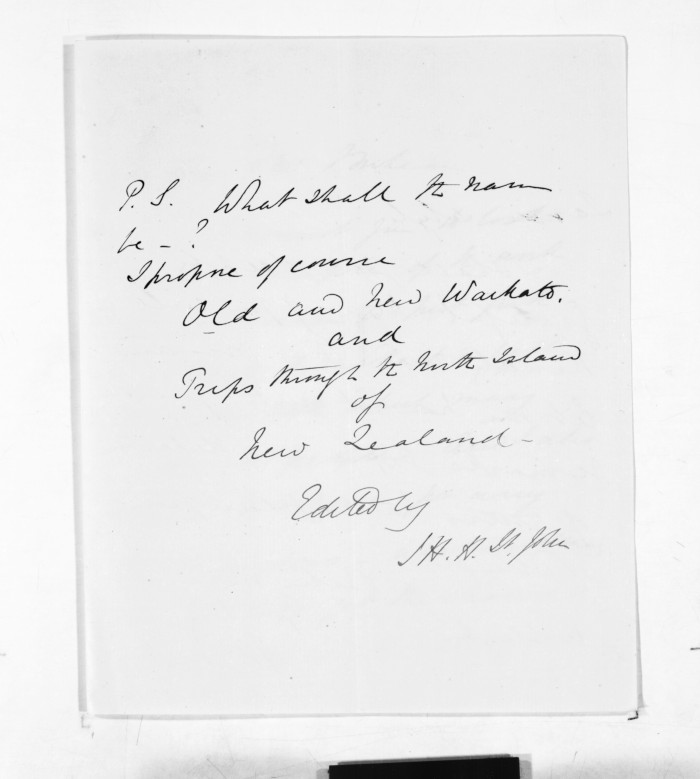 P. S. What shall the name
be - ?
I propose of course
Old and New Waikato.
and
Trips through the North Island
of
New Zealand -
Edited by
J H. H. St. John